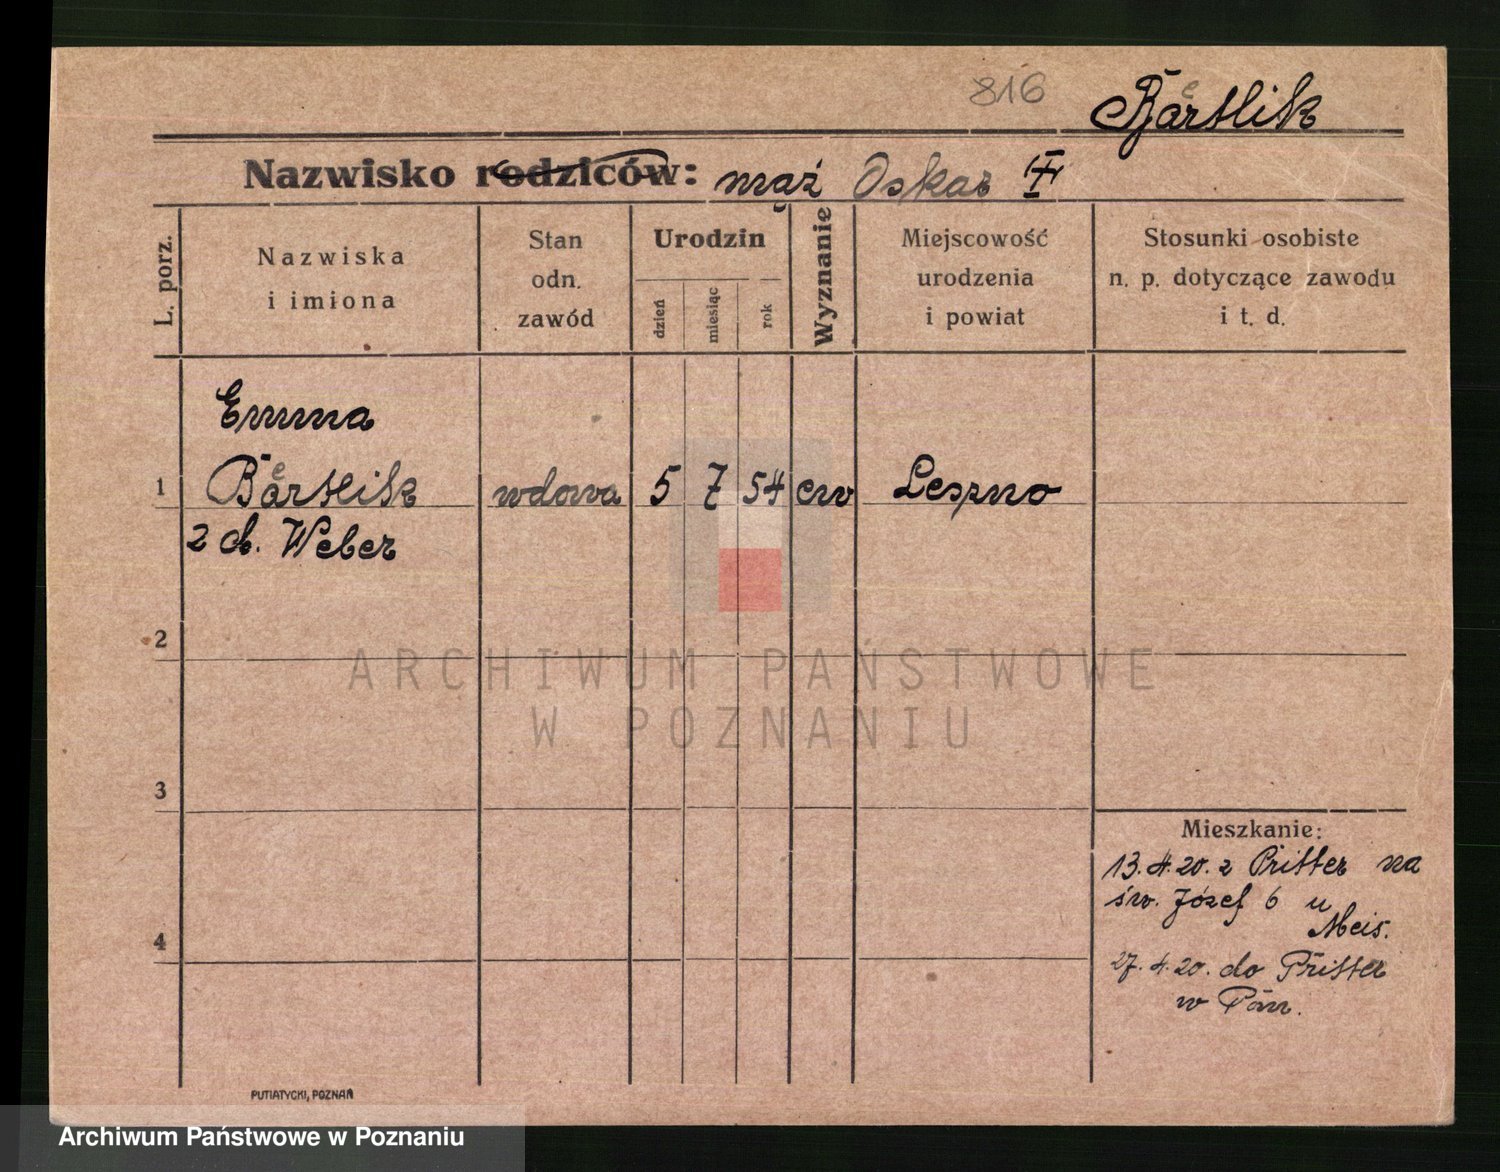 816
Bärtlik
Nazwisko rodziców: mąż Oskar
L. porz.
Nazwiska
i imiona
Stan
odn.
zawód
Urodzin
dzień
miesiąc
rok
Wyznanie
Miejscowość
urodzenia
i powiat
Stosunki osobiste
n. p. dotyczące zawodu
i t. d.
Emma
1 Bärtlik wdowa 5 7 54 ew Leszno
z d. Weber
2
ARCHIWUM PAŃSTWOWE
W POZNANIU
3
Mieszkanie:
13.4.20. z Pritter na
św. Józef 6 u
Meis.
4
27.4.20. do Pritter
w
PUTIATYCKI, POZNAŃ
Archiwum Państwowe w Poznaniu